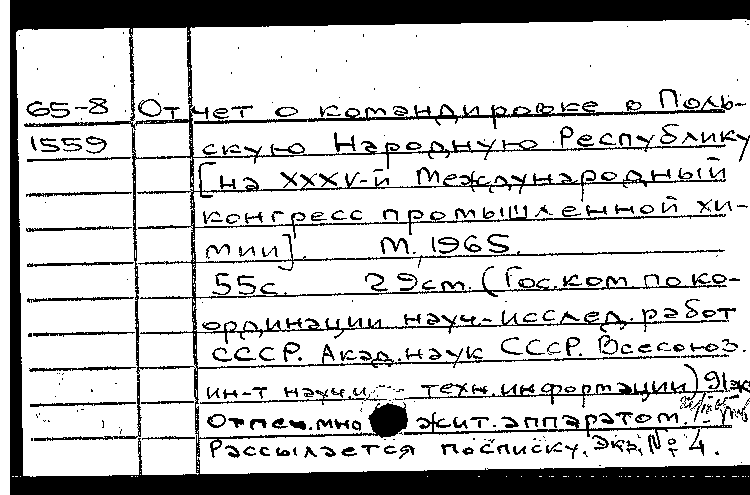 65-8 Отчет о командировке в Поль-
1559 скую Народную Республику
[на XXXV-й Международный
конгресс промышленной хи-
мии]. М., 1965.
55с. 29см. (Гос.ком. по ко-
ординации науч.-исслед. работ
СССР. Акад. наук СССР. Всесоюз.
ин-т науч. и техн. информации) 91эк
Отпеч. множит. аппаратом.
Рассылается по списку. Экз. № 4.